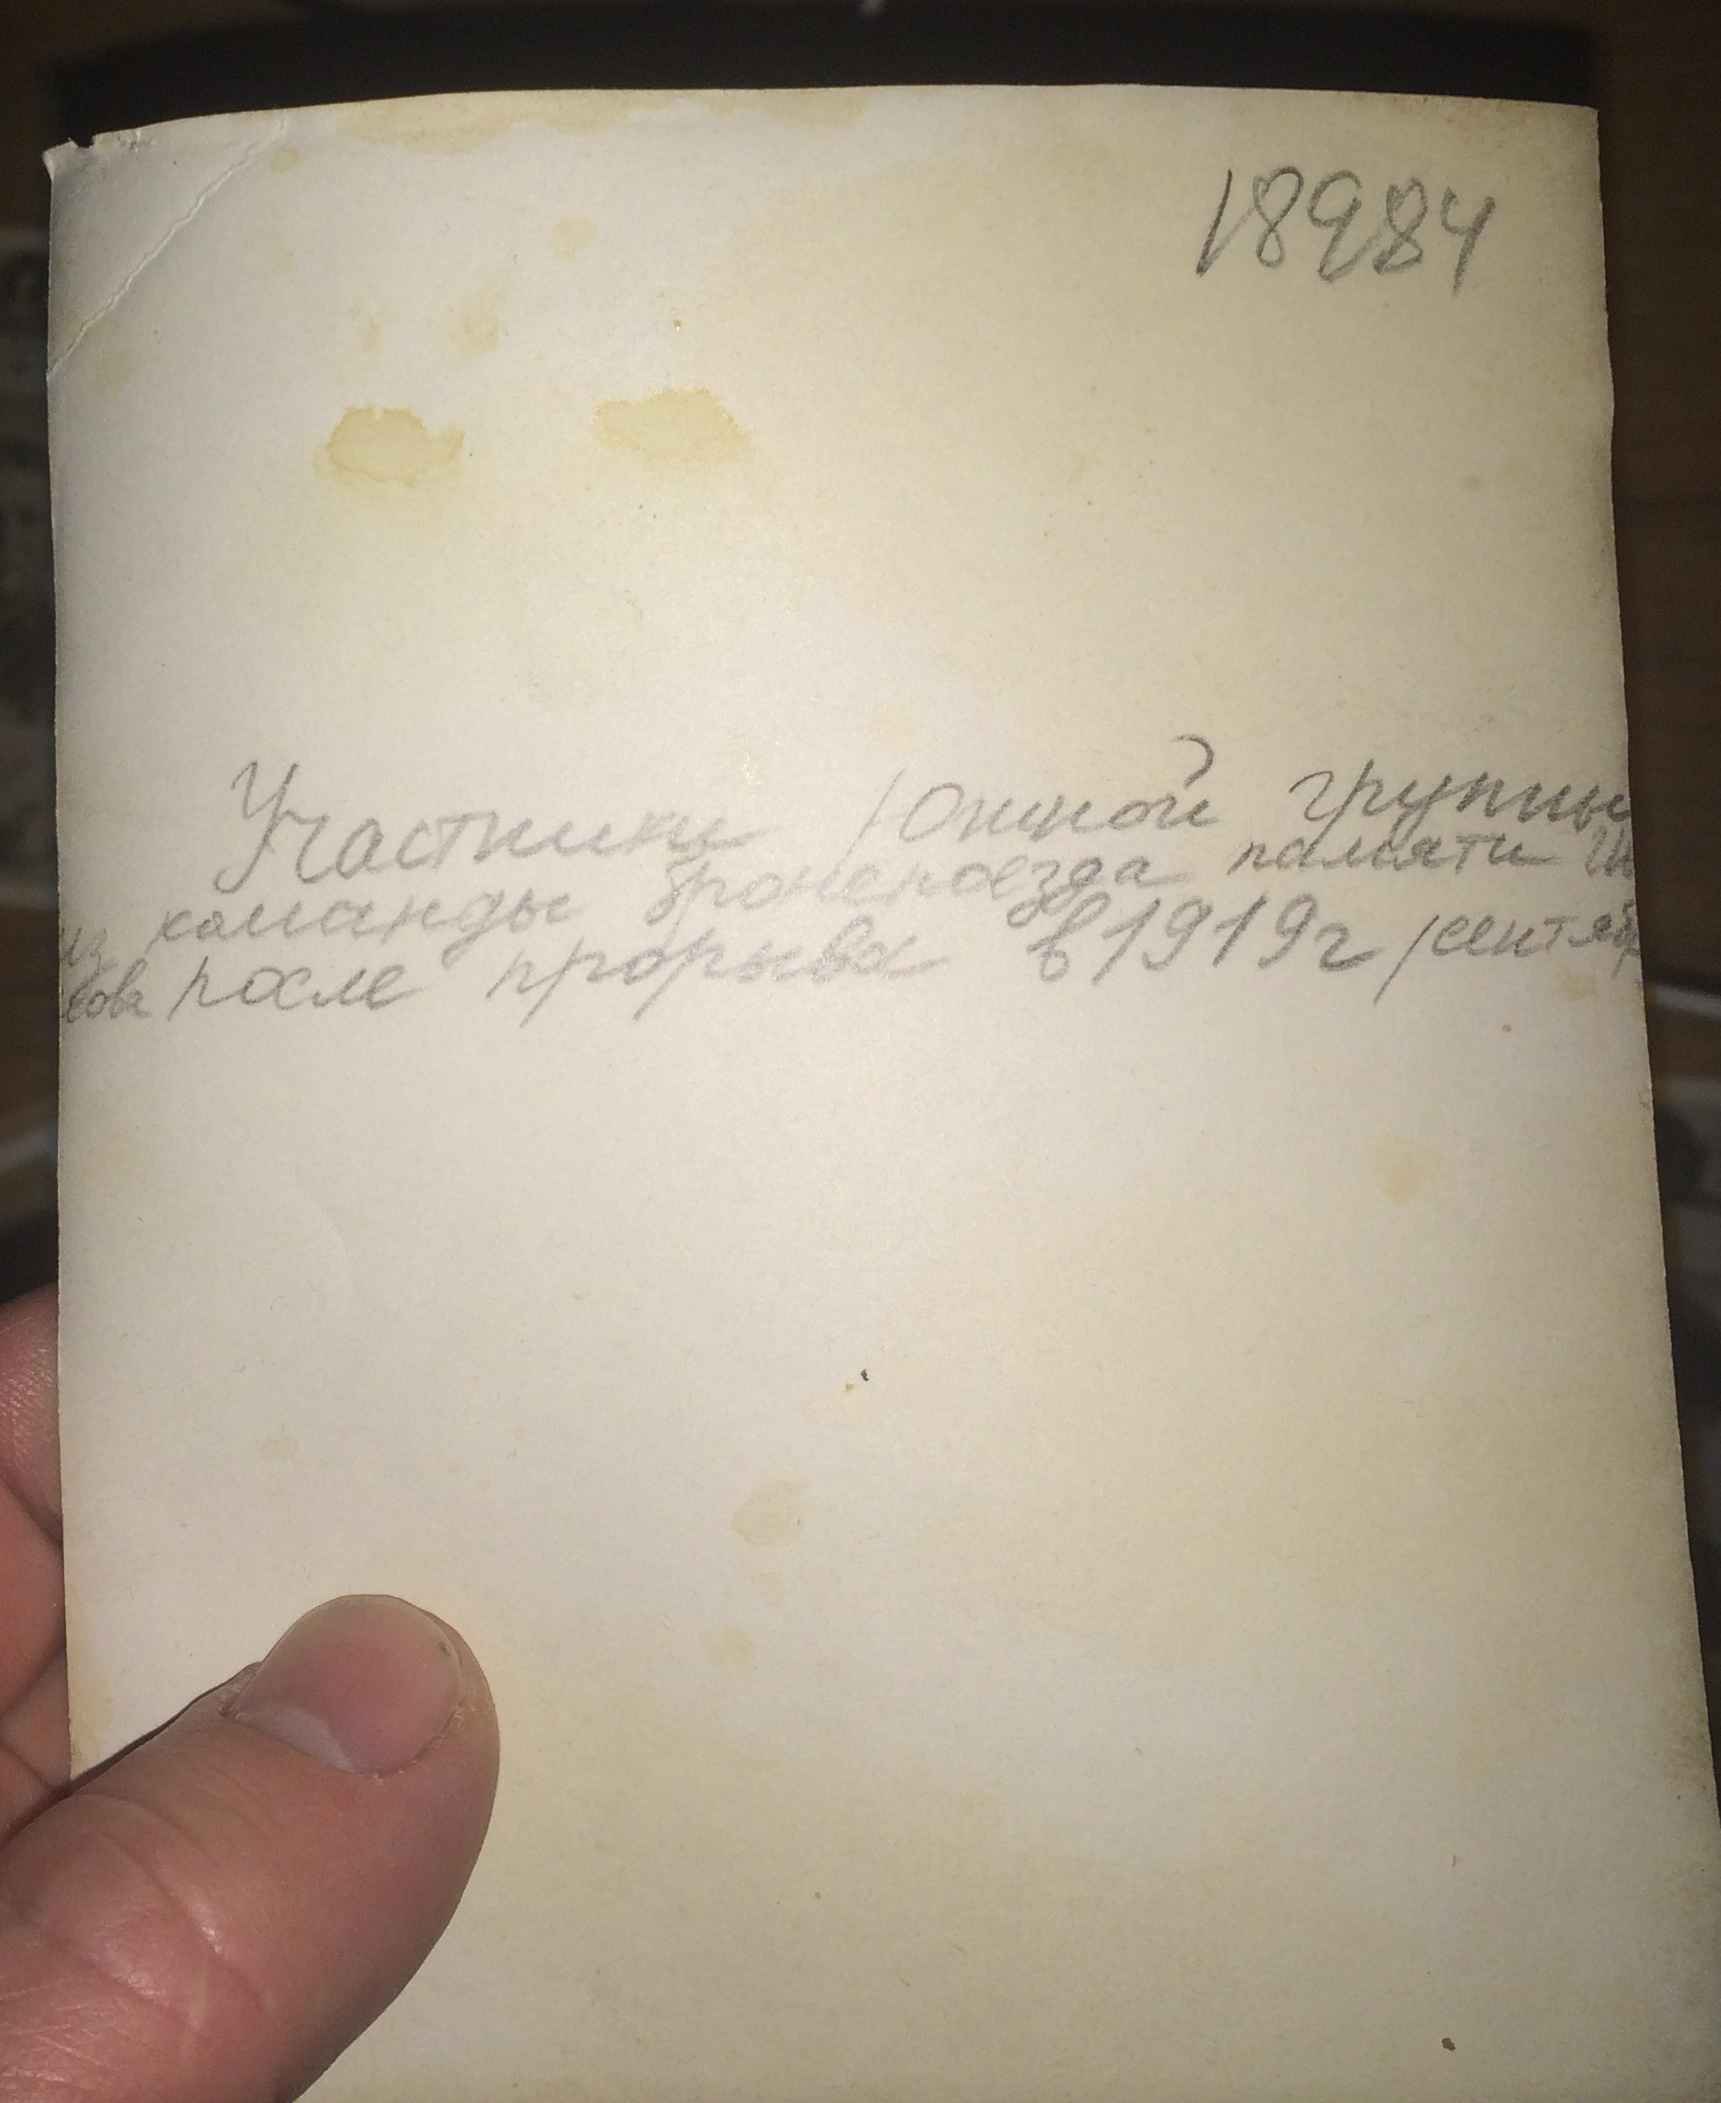 18984
Участники Южной группы
из команды бронепоезда памяти
после прорыва в 1919г /сентябр